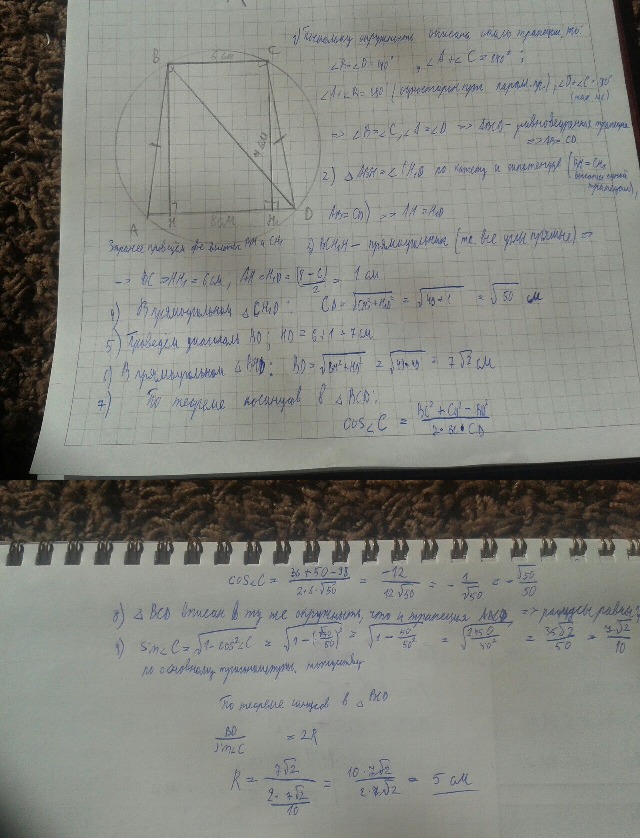 B
6 см
C
7 см
A
H
8 см
H₁
D
1) Поскольку окружность описана около трапеции, то:
∠B+∠D=180°, ∠A+∠C=180°;
∠A+∠B=180 (односторон. при паралл. пр.), ∠D+∠C=180°
=> ∠B=∠C, ∠A=∠D => ABCD - равнобедренная трапеция
=> AB=CD
2) △ABH=△CH₁D по катету и гипотенузе (BH=CH₁
высоты одной трапеции,
AB=CD) => AH=H₁D
Заранее проведём две высоты BH и CH₁
3) BCH₁H - прямоугольник (т.к. все углы прямые) =>
=> BC=HH₁=6см, AH=H₁D=(8-6)/2 = 1 см
4) В прямоугольном △CH₁D: CD=√(CH₁²+H₁D²) = √(49+1) = √50 см
5) Проведём диагональ BD; HD=6+1=7см
6) В прямоугольном △BHD: BD=√(BH²+HD²) = √(49+49) = 7√2 см
7) По теореме косинусов в △BCD:
cos∠C = (BC²+CD²-BD²)/(2·BC·CD)
cos∠C = (36+50-98)/(2·6·√50) = -12/(12√50) = -1/√50 = -√50/50
8) △BCD вписан в ту же окружность, что и трапеция ABCD => радиусы равны
9) sin∠C = √(1-cos²∠C) = √(1-(√50/50)²) = √(1-50/50²) = √(2450/50²) = 35√2/50 = 7√2/10
по основному тригонометрич. тождеству
По теореме синусов в △BCD
BD/sin∠C = 2R
R = 7√2/(2·7√2/10) = 10·7√2/(2·7√2) = 5 см